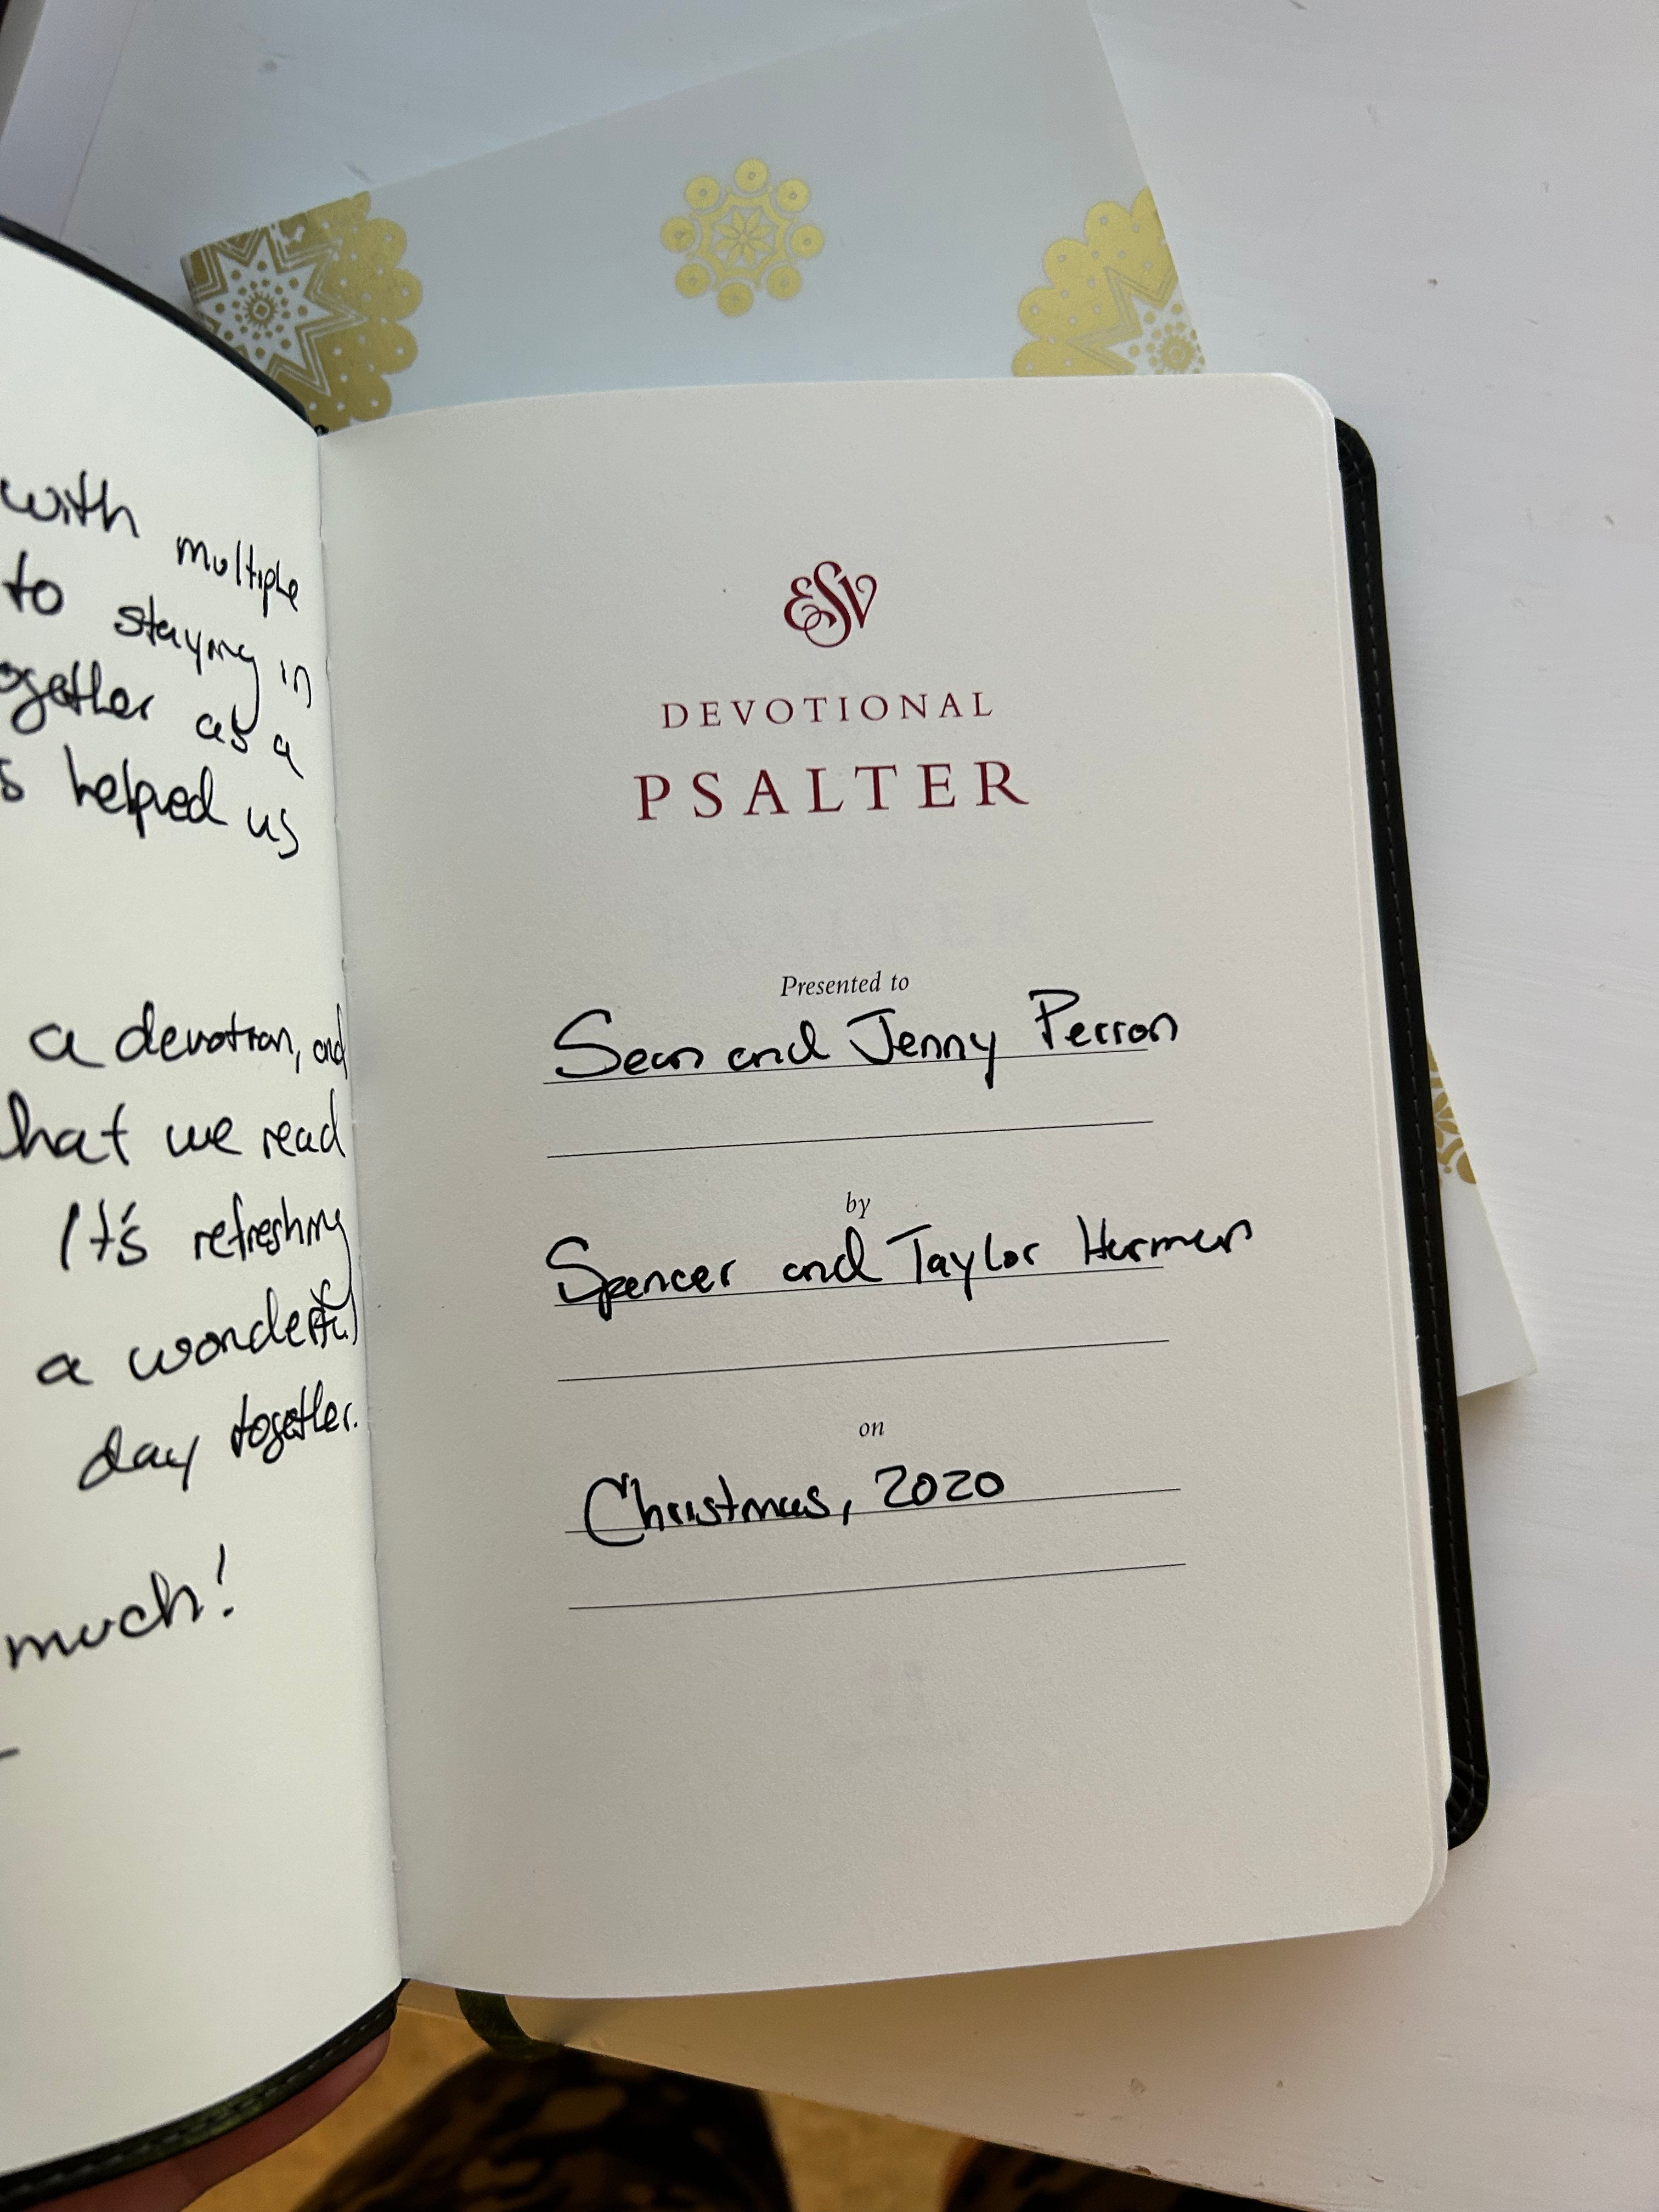 with multiple
to staying in
ogether as a
s helped us
a devotion, and
hat we read
It's refreshing
a wonderful
day together.
much!
ESV
DEVOTIONAL
PSALTER
Presented to
Sean and Jenny Perron
by
Spencer and Taylor Harmon
on
Christmas, 2020